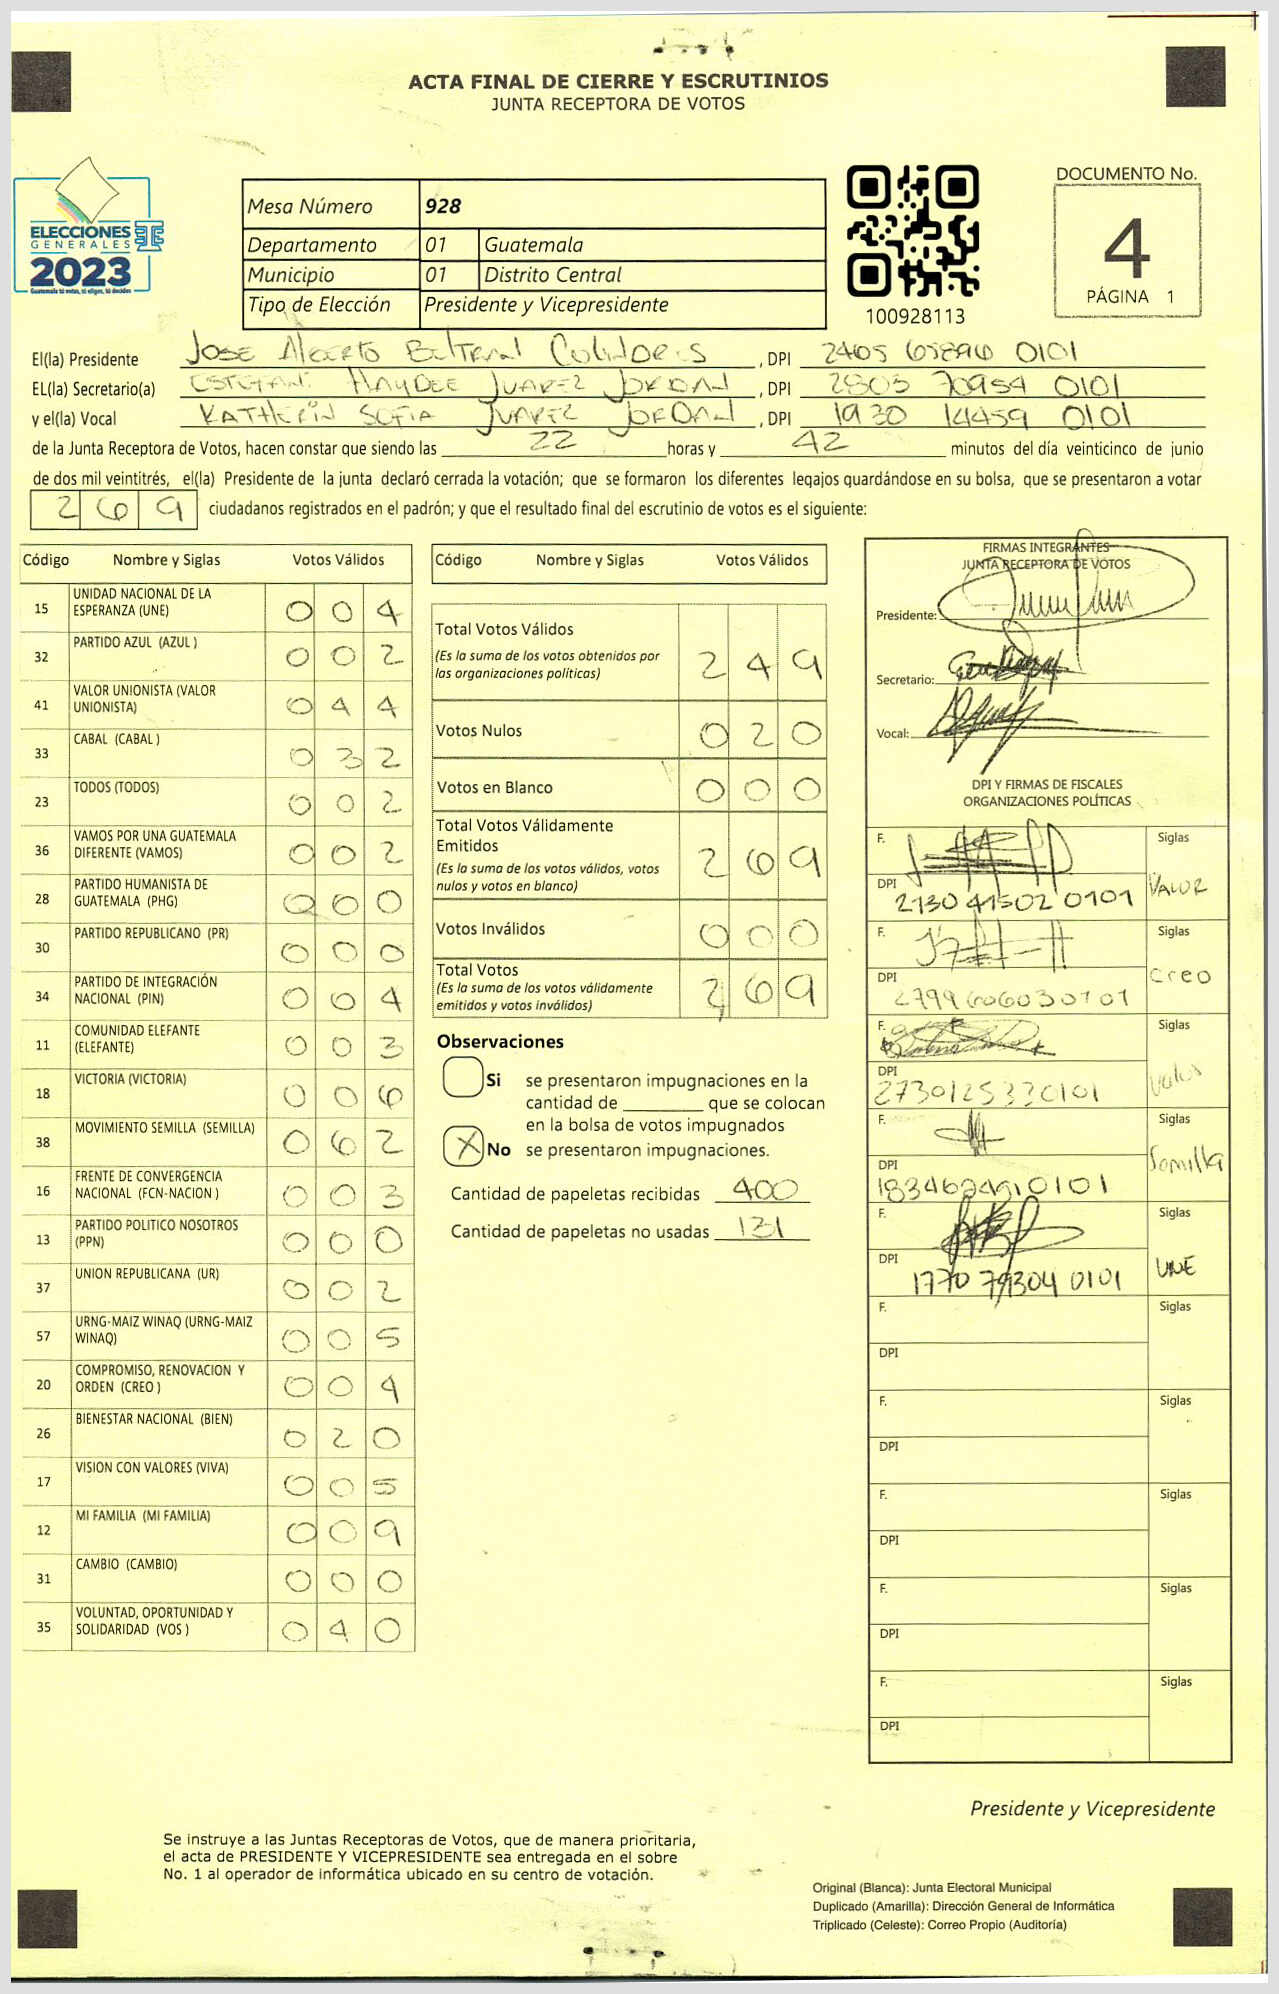 ACTA FINAL DE CIERRE Y ESCRUTINIOS
JUNTA RECEPTORA DE VOTOS
ELECCIONES
GENERALES
2023
Guatemala tú votas, tú eliges, tú decides
Mesa Número 928
Departamento 01 Guatemala
Municipio 01 Distrito Central
Tipo de Elección Presidente y Vicepresidente
100928113
DOCUMENTO No.
4
PÁGINA 1
El(la) Presidente JOSE Alberto BelTRAN , DPI 2405 65896 0101
EL(la) Secretario(a) HAYDEE JUAREZ JORDAN , DPI 2803 70954 0101
y el(la) Vocal KATHERIN SOFIA JUAREZ JORDAN , DPI 1930 14459 0101
de la Junta Receptora de Votos, hacen constar que siendo las 22 horas y 42 minutos del día veinticinco de junio
de dos mil veintitrés, el(la) Presidente de la junta declaró cerrada la votación; que se formaron los diferentes legajos guardándose en su bolsa, que se presentaron a votar
269 ciudadanos registrados en el padrón; y que el resultado final del escrutinio de votos es el siguiente:
Código Nombre y Siglas Votos Válidos
15 UNIDAD NACIONAL DE LA ESPERANZA (UNE) 004
32 PARTIDO AZUL (AZUL ) 002
41 VALOR UNIONISTA (VALOR UNIONISTA) 044
33 CABAL (CABAL ) 032
23 TODOS (TODOS) 002
36 VAMOS POR UNA GUATEMALA DIFERENTE (VAMOS) 002
28 PARTIDO HUMANISTA DE GUATEMALA (PHG) 000
30 PARTIDO REPUBLICANO (PR) 000
34 PARTIDO DE INTEGRACIÓN NACIONAL (PIN) 004
11 COMUNIDAD ELEFANTE (ELEFANTE) 003
18 VICTORIA (VICTORIA) 006
38 MOVIMIENTO SEMILLA (SEMILLA) 062
16 FRENTE DE CONVERGENCIA NACIONAL (FCN-NACION ) 003
13 PARTIDO POLITICO NOSOTROS (PPN) 000
37 UNION REPUBLICANA (UR) 002
57 URNG-MAIZ WINAQ (URNG-MAIZ WINAQ) 005
20 COMPROMISO, RENOVACION Y ORDEN (CREO ) 004
26 BIENESTAR NACIONAL (BIEN) 020
17 VISION CON VALORES (VIVA) 005
12 MI FAMILIA (MI FAMILIA) 009
31 CAMBIO (CAMBIO) 000
35 VOLUNTAD, OPORTUNIDAD Y SOLIDARIDAD (VOS ) 040
Código Nombre y Siglas Votos Válidos
Total Votos Válidos 249
(Es la suma de los votos obtenidos por las organizaciones políticas)
Votos Nulos 020
Votos en Blanco 000
Total Votos Válidamente Emitidos 269
(Es la suma de los votos válidos, votos nulos y votos en blanco)
Votos Inválidos 000
Total Votos 269
(Es la suma de los votos válidamente emitidos y votos inválidos)
Observaciones
Si se presentaron impugnaciones en la
cantidad de ________ que se colocan
en la bolsa de votos impugnados
X No se presentaron impugnaciones.
Cantidad de papeletas recibidas 400
Cantidad de papeletas no usadas 131
FIRMAS INTEGRANTES
JUNTA RECEPTORA DE VOTOS
Presidente:
Secretario:
Vocal:
DPI Y FIRMAS DE FISCALES
ORGANIZACIONES POLÍTICAS
F. Siglas
DPI 2130 41502 0101 VALOR
F. Siglas
DPI 2799606030101 Creo
F. Siglas
DPI 2730125330101
F. Siglas
DPI Semilla
F. Siglas
DPI 1770 79304 0101 UNE
F. Siglas
DPI
F. Siglas
DPI
F. Siglas
DPI
F. Siglas
DPI
F. Siglas
DPI
Presidente y Vicepresidente
Se instruye a las Juntas Receptoras de Votos, que de manera prioritaria,
el acta de PRESIDENTE Y VICEPRESIDENTE sea entregada en el sobre
No. 1 al operador de informática ubicado en su centro de votación.
Original (Blanca): Junta Electoral Municipal
Duplicado (Amarilla): Dirección General de Informática
Triplicado (Celeste): Correo Propio (Auditoría)